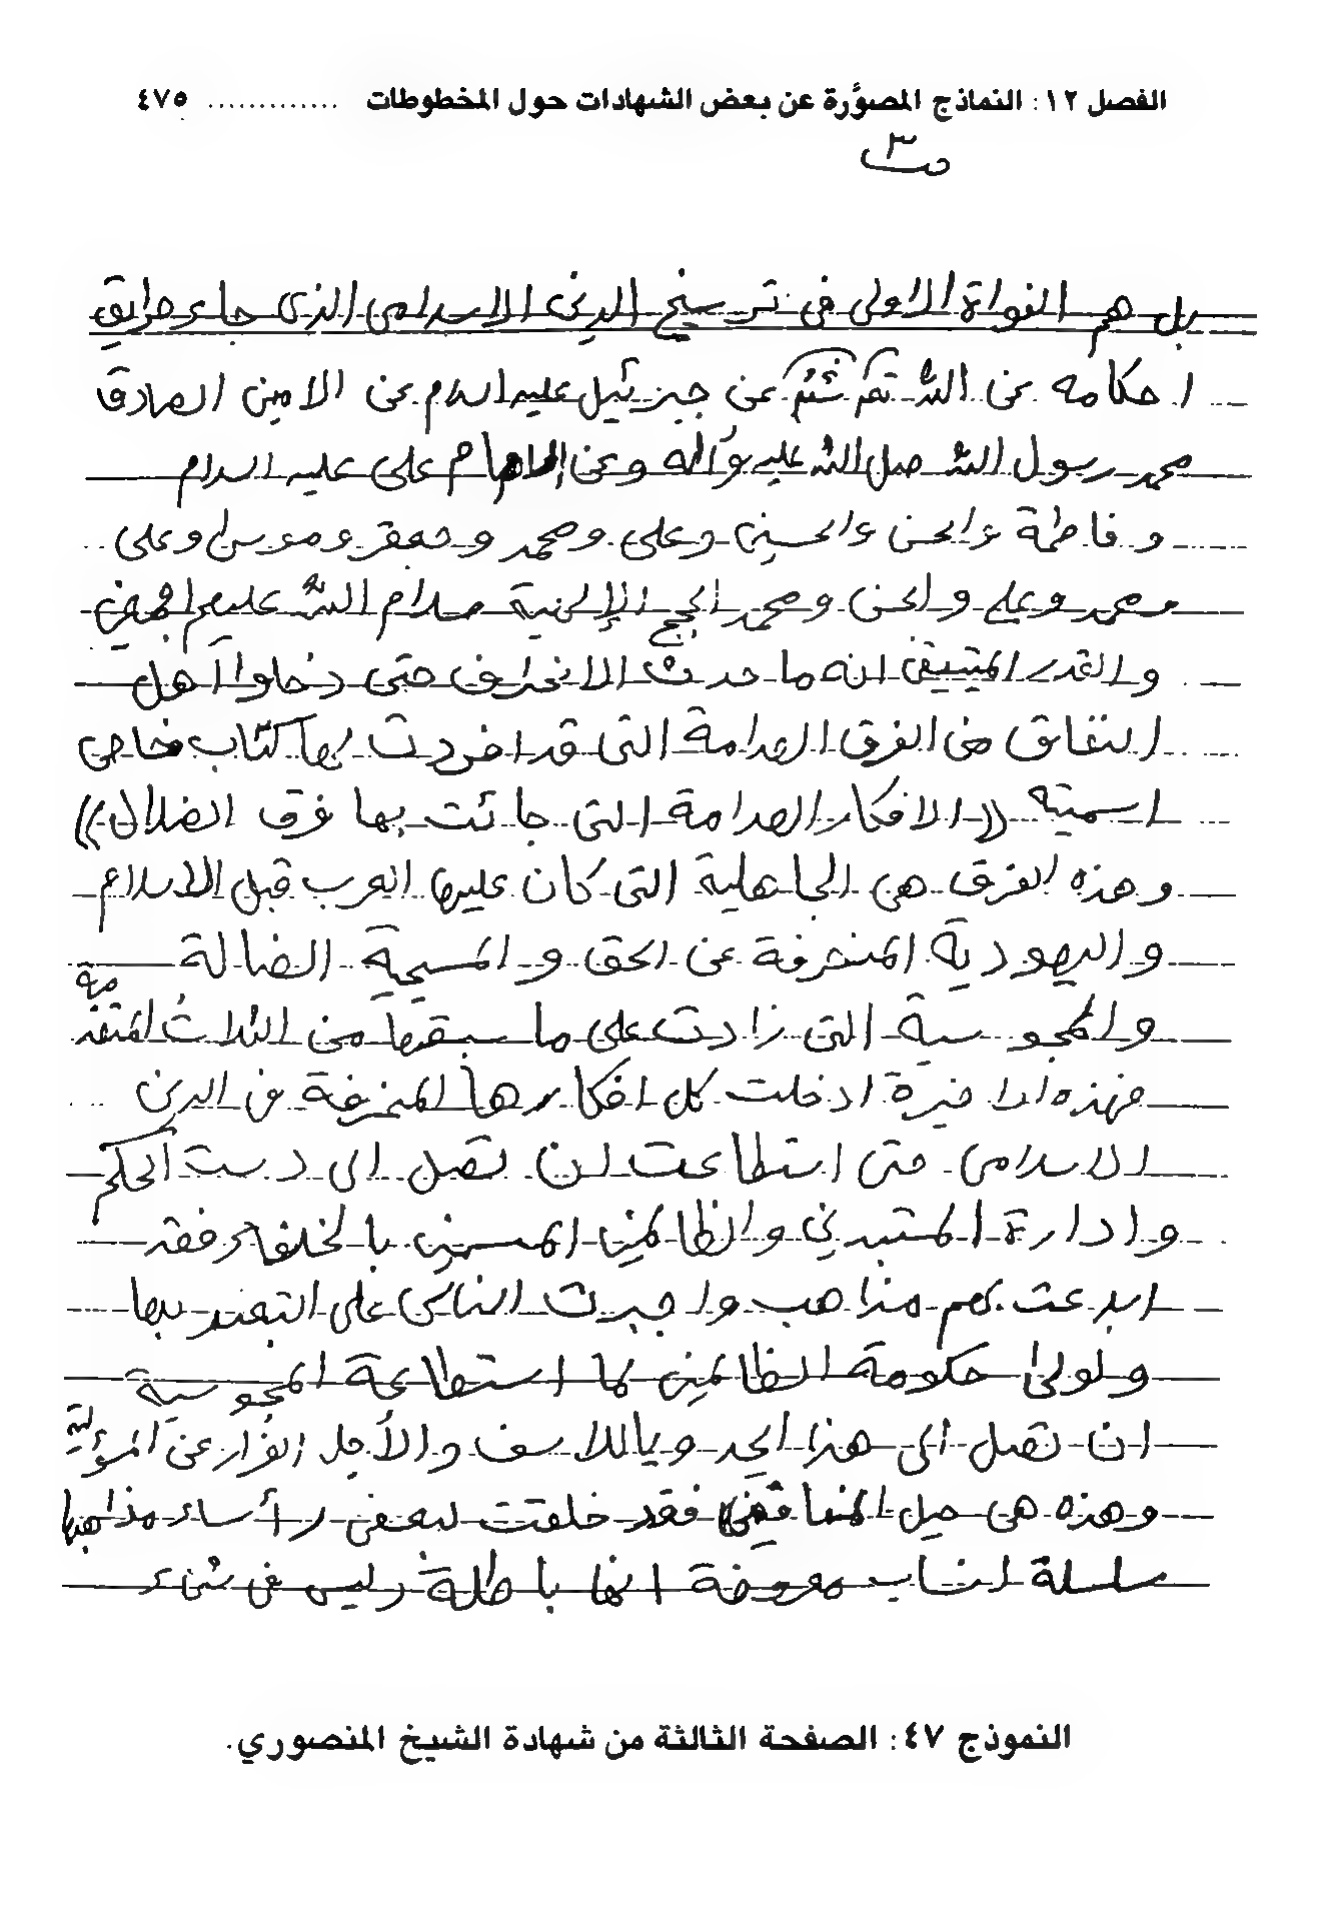 الفصل ١٢: النماذج المصوَّرة عن بعض الشهادات حول المخطوطات ............. ٤٧٥
ص٣
بل هم النواة الاولى في ترسيخ الدين الاسلامي الذي جاء طريق
احكامه عن الله ثم عن جبرئيل عليه السلام عن الامين الصادق
محمد رسول الله صلى الله عليه وآله وعن الامام على عليه السلام
وفاطمة والحسن والحسين وعلى ومحمد وجعفر وموسى وعلى
ومحمد وعلي والحسن ومحمد الحجج الإلهية سلام الله عليهم اجمعين
والقدر المتيقن انه ما حدث الانحراف حتى دخلوا أهل
النفاق من الفرق الهدامة التى قد افردت بها كتاب خاص
اسميته ((الافكار الهدامة التى جائت بها فرق الضلال))
وهذه الفرق هي الجاهلية التى كان عليها العرب قبل الاسلام
واليهودية المنحرفة عن الحق والمسيحية الضالة
والمجوسية التى زادت على ما سبقها من الثلاث المتقدمة
فهذه الاخيرة ادخلت كل افكارها المنحرفة في الدين
الاسلامي حتى استطاعت ان تصل الى دست الحكم
وادارة المستبدين والظالمين المسمين بالخلفاء فقد
ابدعت لهم مذاهب واجبرت الناس على التعبد بها
ولولى حكومة الظالمين لما استطاعة المجوسية
ان تصل الى هذا الحد وياللاسف والأجل الفرار عن المسؤلية
وهذه هي حيل المنافقين فقد خلقت لبعض رأساء مذاهبها
سلسلة انساب معروفة انها باطلة وليس في شيء
النموذج ٤٧: الصفحة الثالثة من شهادة الشيخ المنصوري.